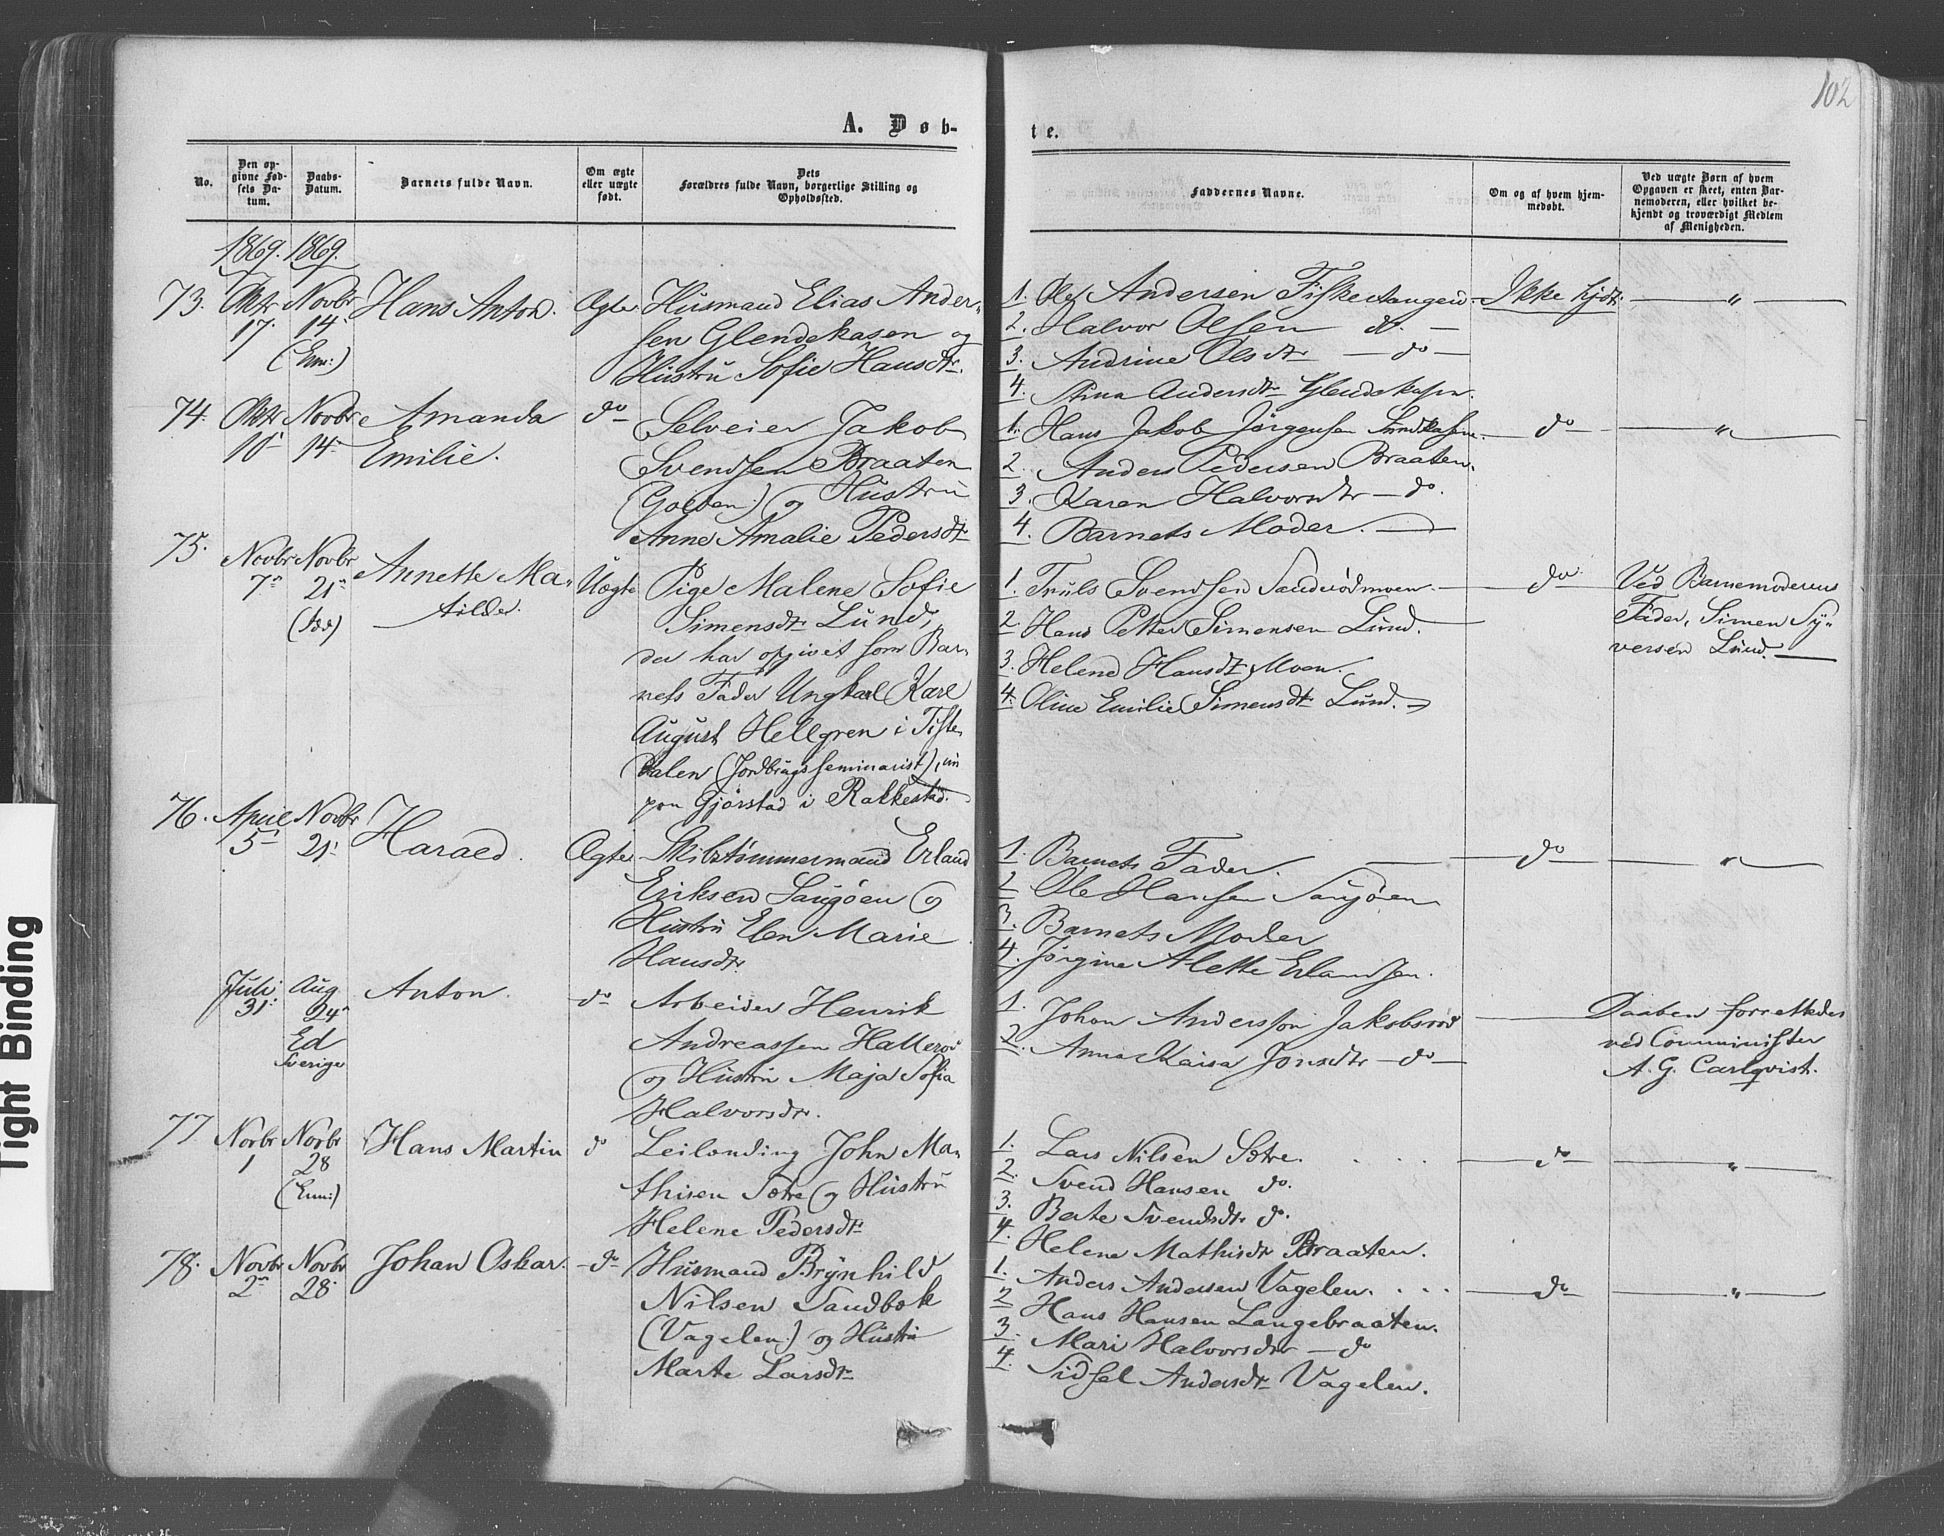 102
A. Døb-
te.
No.
Den op-
givne Fød-
sels Da-
tum.
Daabs-
Datum.
Barnets fulde Navn.
Om ægte
eller uægte
født.
Dets
Forældres fulde Navn, borgerlige Stilling og
Opholdssted.
Faddernes Navne.
Om og af hvem hjem-
medøbt.
Ved uægte Børn af hvem
Opgaven er skeet, enten Bar-
nemoderen, eller hvilket be-
kjendt og troværdigt Medlem
af Menigheden.
1869. 1869.
73. Oktr 17. Novbr 14. (Enn:)
Hans Anton.
Ægte
Husmand Elias Ander-
sen Glendekasen og
Hustru Sofie Hansdtr.
1. Ole Andersen Fisketangen.
2. Halvor Olsen do. —
3. Andrine Olsdtr — do —
4. Anna Andersdtr Glendekasen.
Ikke hjdt. — " —
74. Oktr 10 Novbr 14.
Amanda
Emilie.
do
Selveier Jakob
Svendsen Braaten
(Golben) og Hustru
Anne Amalie Pedersdtr
1. Hans Jakob Jørgensen
2. Anders Pedersen Braaten.
3. Karen Halvorsdtr — do.
4. Barnets Moder. —
— do — " —
75. Novbr 7 Novbr 21 (Idd)
Annette Ma-
tilde.
Uægte
Pige Malene Sofie
Simensdtr Lund,
der har opgivet som Bar-
nets Fader Ungkarl Karl
August Hellgren i Tiste-
dalen (Jordbrugsseminarist), nu
paa Gjørstad i Rakkestad.
1. Truls Svendsen Sandrødmoen. —
2. Hans Petter Simensen Lund. —
3. Helene Hansdtr Moen.
4. Oline Emilie Simensdtr Lund. —
— do —
Ved Barnemoderens
Fader, Simen Sy-
versen Lund. —
76. April 5 Novbr 21.
Harald.
Ægte
Skibstømmermand Erland
Eriksen Saugøen og
Hustru Elen Marie
Hansdtr.
1. Barnets Fader.
2 Ole Hansen Saugøen
3. Barnets Moder
4. Jørgine Alette Erlandsen.
— do — " —
Juli 31. Aug 24
Ed
Sverige
Anton.
do
Arbeider Henrik
Andreassen Hallerød
og Hustru Maja Sofia
Halvorsdtr.
1. Johan Andersson Jakobsrød
2. Anna Kaisa Jonsdtr — do —
Daaben forrettedes
ved Comminister
A. G. Carlqvist.
77 Novbr 1 Novbr 28 (Enn:)
Hans Martin
do
Leilending John Ma-
thisen Sotre og Hustru
Helene Pedersdtr
1. Lars Nilsen Sotre.
2. Svend Hansen do.
3. Berte Svendsdtr do.
4. Helene Mathisdtr Braaten.
— do — " —
78. Novbr 2 Novbr 28.
Johan Oskar.
— do
Husmand Brynhild
Nilsen Sandbæk
(Vagelen.) og Hustru
Marte Larsdtr
1. Anders Andersen Vagelen.
2 Hans Hansen Langebraaten.
3. Mari Halvorsdtr — do
4. Sidsel Andersdtr Vagelen.
— do — " —
Tight Binding